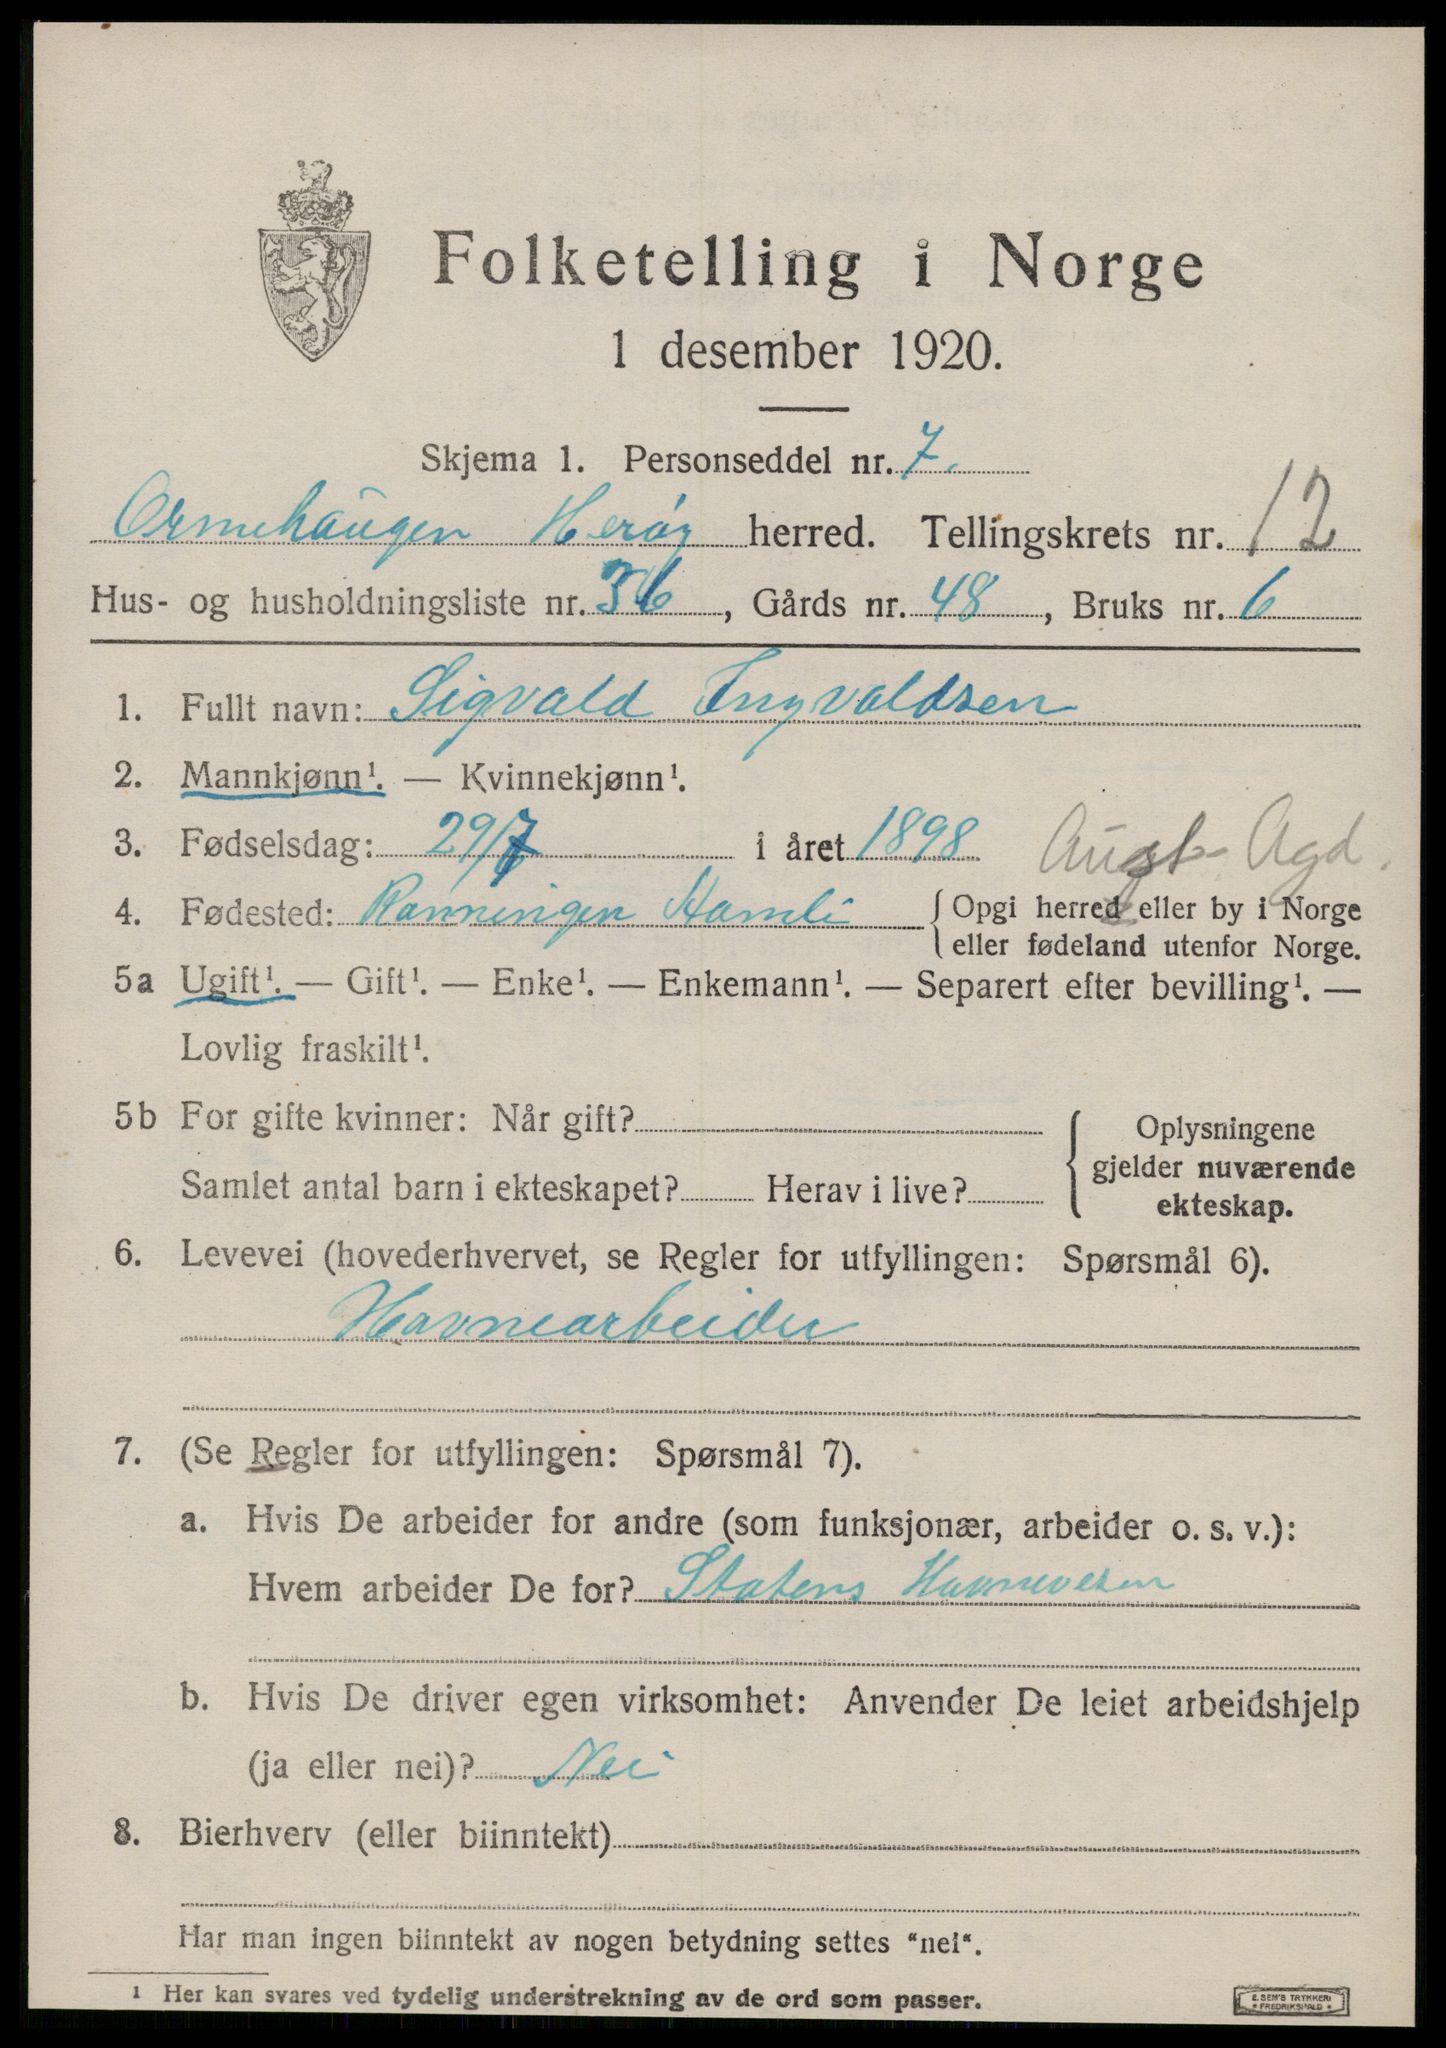 Folketelling i Norge
1 desember 1920.
Skjema 1. Personseddel nr. 7.
Ormehaugen Herøy herred. Tellingskrets nr. 12
Hus- og husholdningsliste nr. 36, Gårds nr. 48, Bruks nr. 6
1. Fullt navn: Sigvald Ingvaldsen
2. Mannkjønn¹. — Kvinnekjønn¹.
3. Fødselsdag: 29/7 i året 1898 Aust-Agd.
4. Fødested: Rønningen Hamli {Opgi herred eller by i Norge
eller fødeland utenfor Norge.
5a Ugift¹. — Gift¹. — Enke¹. — Enkemann¹. — Separert efter bevilling¹. —
Lovlig fraskilt¹.
5b For gifte kvinner: Når gift? {Oplysningene
gjelder nuværende
Samlet antal barn i ekteskapet? Herav i live?
ekteskap.
6. Levevei (hovederhvervet, se Regler for utfyllingen: Spørsmål 6).
Havnearbeider
7. (Se Regler for utfyllingen: Spørsmål 7).
a. Hvis De arbeider for andre (som funksjonær, arbeider o. s. v.):
Hvem arbeider De for? Statens Havnevesen
b. Hvis De driver egen virksomhet: Anvender De leiet arbeidshjelp
(ja eller nei)? Nei
8. Bierhverv (eller biinntekt)
Har man ingen biinntekt av nogen betydning settes "nei".
1 Her kan svares ved tydelig understrekning av de ord som passer.
E. SEM'S TRYKKERI
* FREDRIKSHALD *